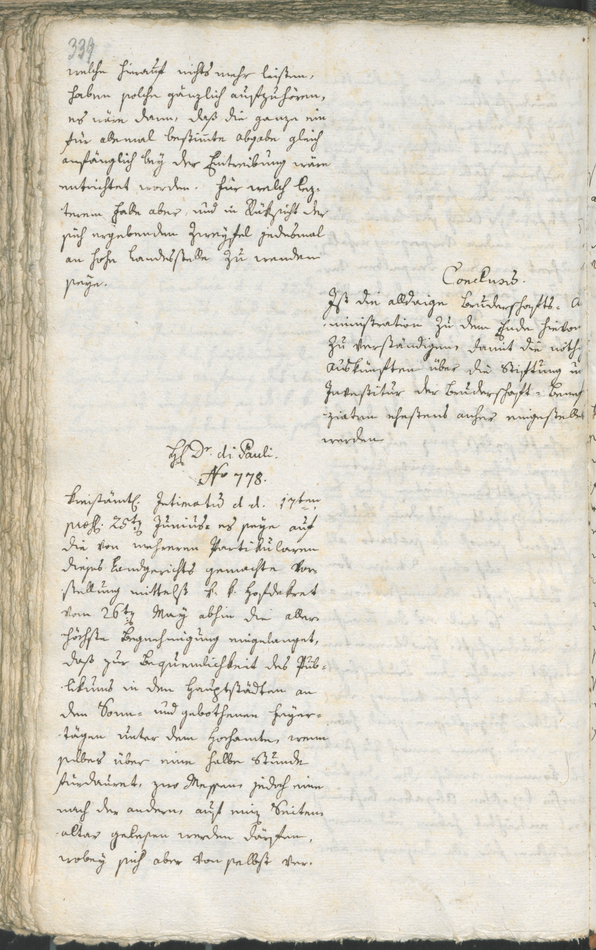 339
welche hierauf nichts mehr leisten,
haben solche gänzlich aufzuhören,
es wäre dann, daß die ganze ein
für alemal bestimte abgabe gleich
anfänglich bey der Eintreibung wäre
entrichtet worden. für welch lez-
teren falle aber, und in Rüksicht der
sich ergebenden Zweyfel jedesmal
an hohe Landesstelle zu wenden
seye.
Conclusis.
Ist die alldaige Bruderschafts-A
ministration zu dem Ende hievon
zu verständigen, damit die nöth
Auskünften über die Stiftung u
Investitur der Bruderschaft-Benef
ziaten ehestens anher eingestellt
werden
H Dr. di Pauli.
No 778.
Kreisämtl. Intimatum d. d. 17ten
25ten Junius: es seye auf
die von mehreren Partikularen
dieses Landgerichts gemachte Vor-
stellung mittelst k. k. Hofdekret
vom 26ten May abhin die aller-
höchste Begnehmigung eingelanget,
daß zur Bequemlichkeit des Pub-
likums in den Hauptstädten an
den Sonn- und gebothenen Feyer-
tägen unter dem Hochamte, wenn
selbes über eine halbe Stunde
fürdauret, zwo Messen, jedoch eine
nach der andern, auf einem Seiten-
altar gelesen werden därfen,
wobey sich aber von selbst ver-